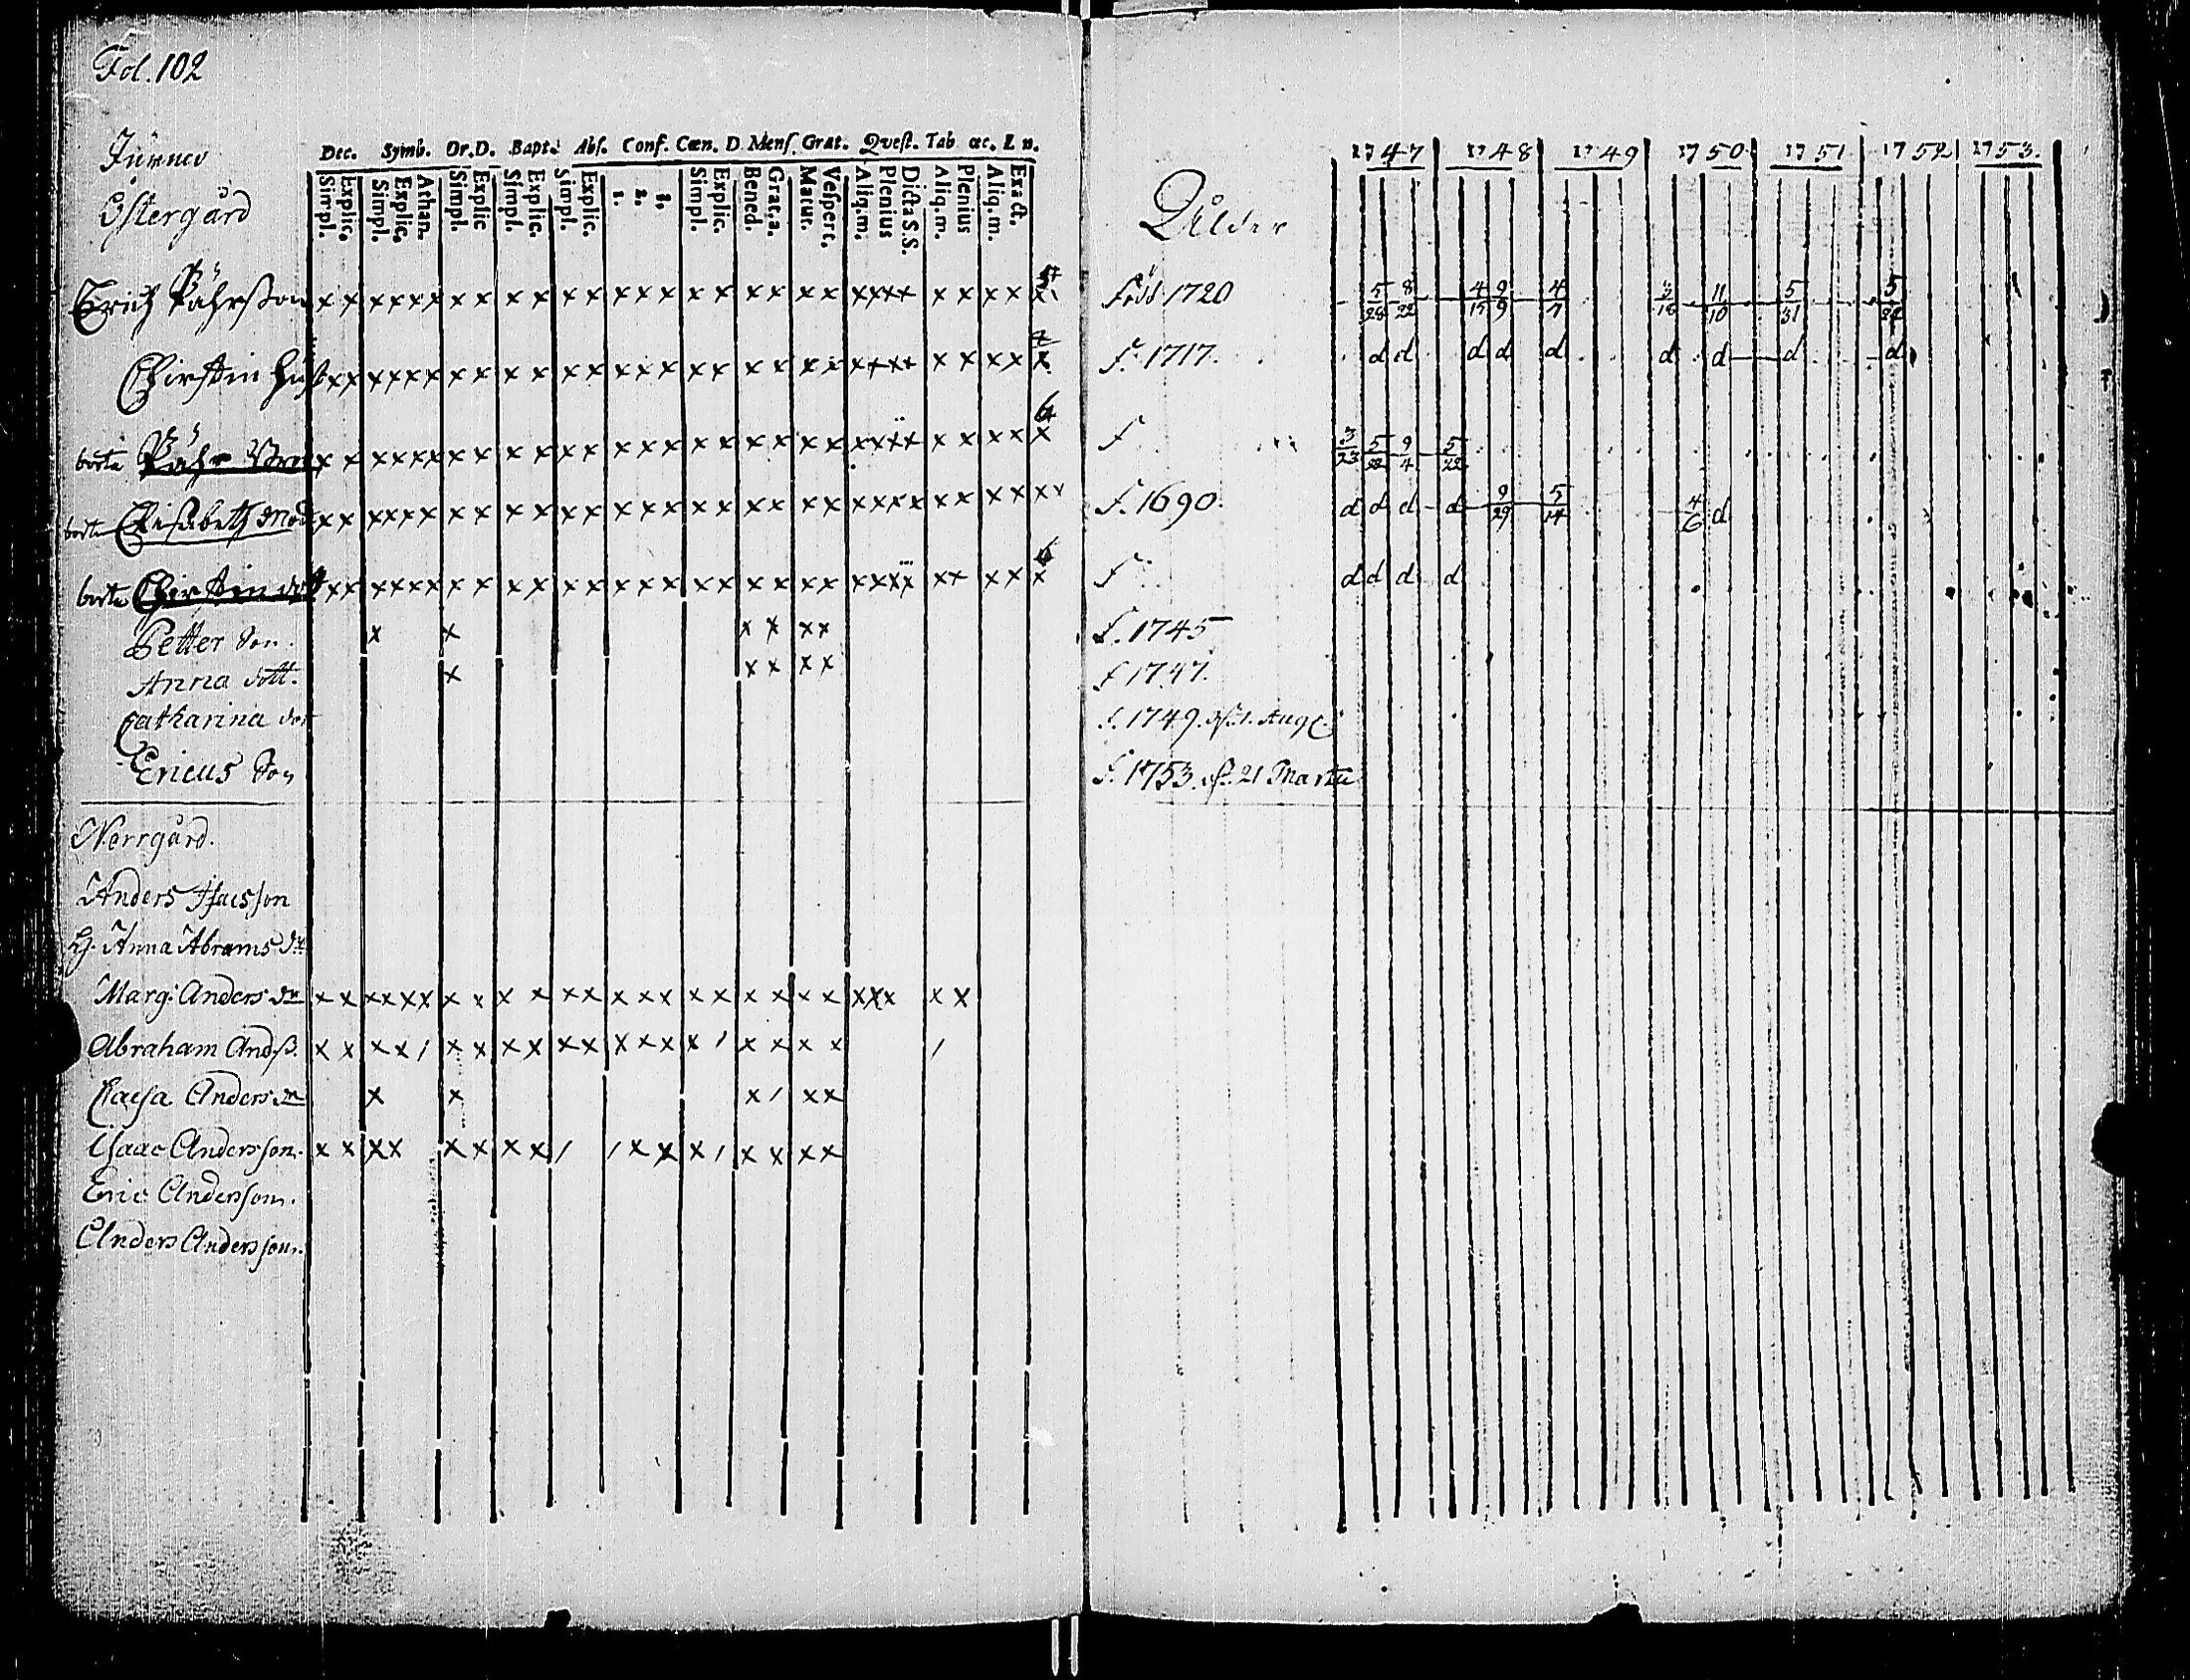 Fol. 102
Östergård
Dec. Symb. Or.D. Bapt. Abs. Conf. Cœn. D. Mens. Grat. Qvest. Tab œc. L n.
Simpl. Explic. Simpl. Explic. Athan. Simpl. Explic Simpl. Explic. Simpl. Explic. 1. 2. 3. Simpl. Explic. Bened. Grat.a. Matut. Vespert. Aliq.m. Plenius Dicta S.S. Aliq.m. Plenius Aliq.m. Exact.
Erich Pährsson
Chirstin Hust
borta Pähr
borta Elisabeth Mod
borta Chirstin dot
Petter Son.
Anna dott.
Catharina dot
Ericus Son
Nerrgård.
Anders Isacsson
H. Anna Abrams dr
Marg: Anders dr
Abraham Andß.
Caesa Anders dr
Isaac Andersson.
Eric Andersson.
Anders Andersson.
Ålder
1747 1748 1749 1750 1751 1752 1753.
Född 1720 5/28 8/22 4/15 9/9 4/7 3/18 11/10 5/31 5/24
F. 1717. d d d d d d d d d
F 3/23 5/22 9/4 5/22
F. 1690. d d d d 9/29 5/14 4/6 d
F d d d d
F. 1745
F 1747.
F. 1749. d. 1. Aug
F. 1753. d. 21 Martii